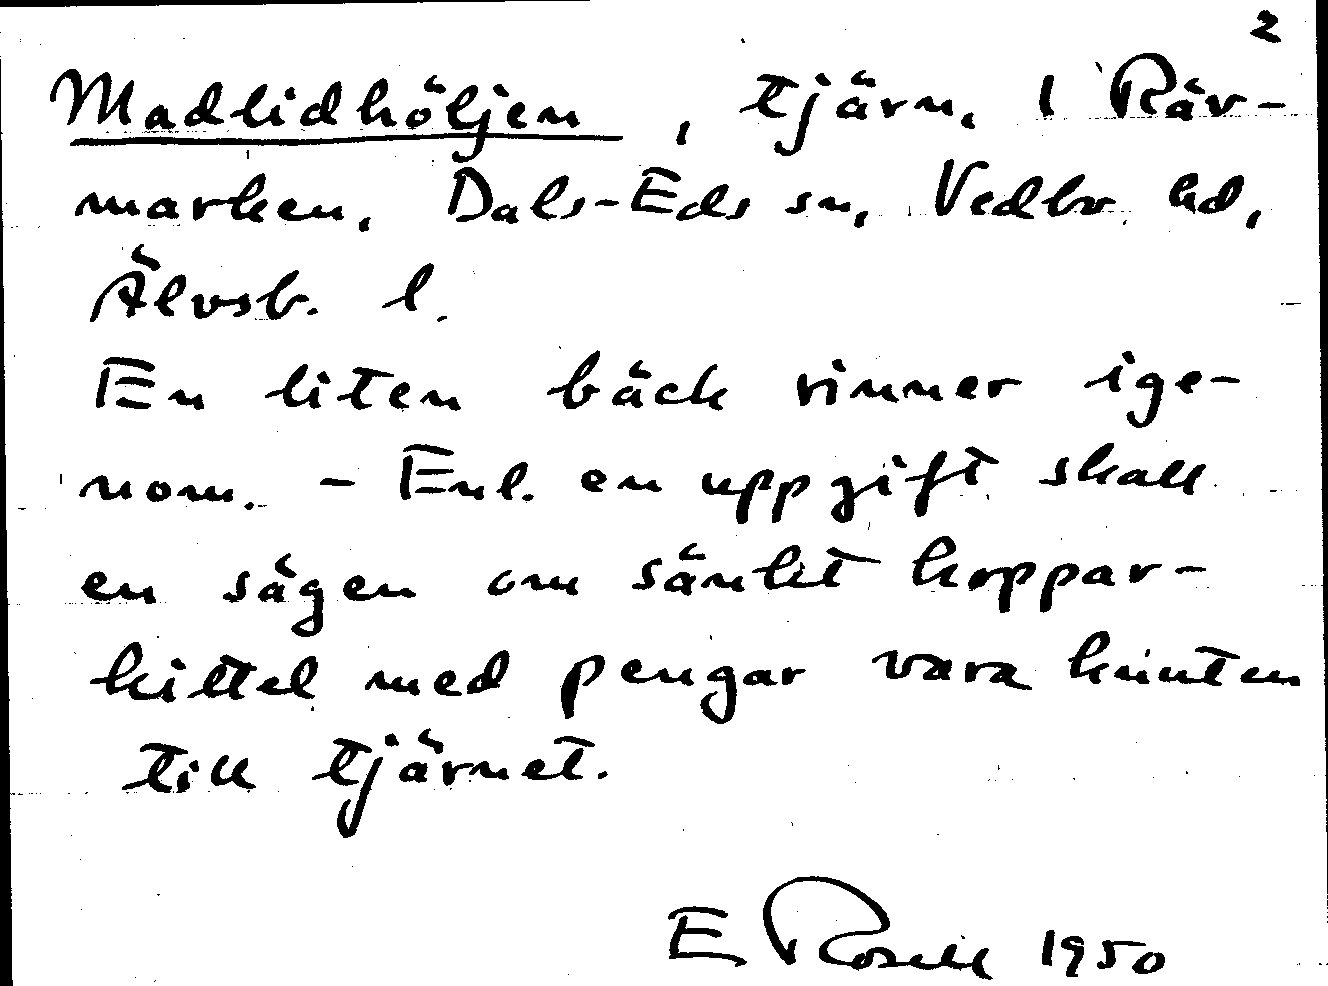 2
Madlidhöljen, tjärn, 1 Räv-
marken, Dals-Eds sn, Vedbo hd,
Älvsb. l.
En liten bäck rinner ige-
nom. - Enl. en uppgift skall
en sägen om sänkt koppar-
kittel med pengar vara knuten
till tjärnet.
E Rosell 1950